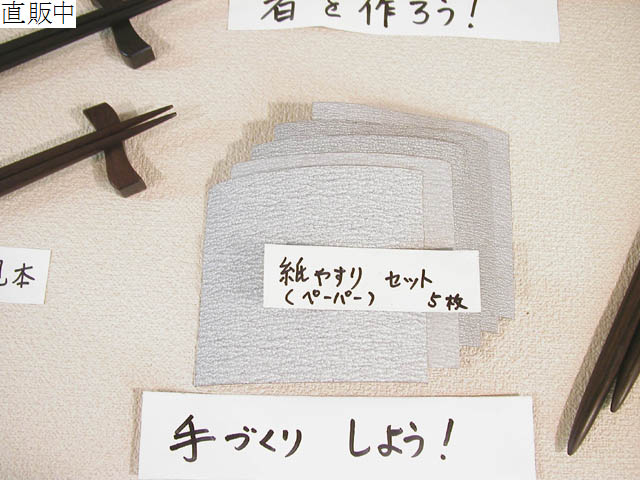 直販中
を作ろう!
見本
紙やすり セット
(ペーパー) 5枚
手づくり しよう!